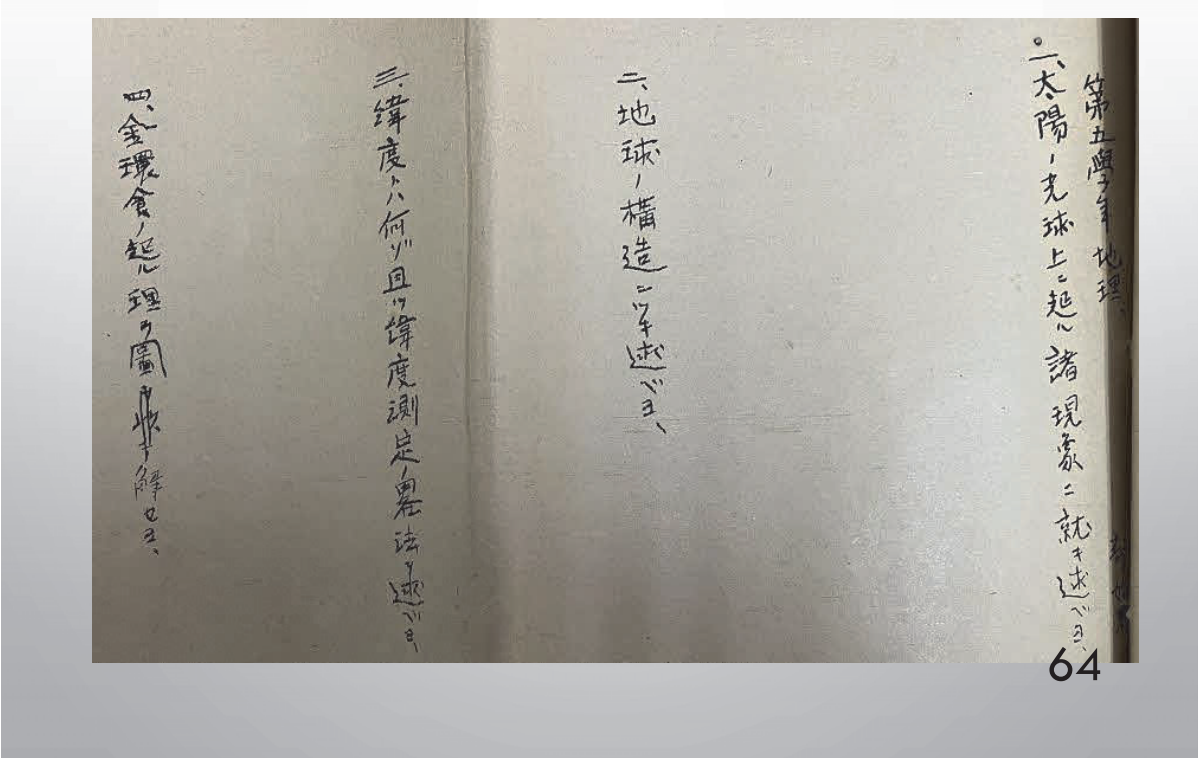 第五學年地理、
一、太陽ノ光球上ニ起ル諸現象ニ就キ述ベヨ、
二、地球ノ構造ニツキ述ベヨ、
三、緯度トハ何ゾ且ツ緯度測定ノ畧法ヲ述ベヨ、
四、金環食ノ起ル理ヲ圖解セヨ、
64